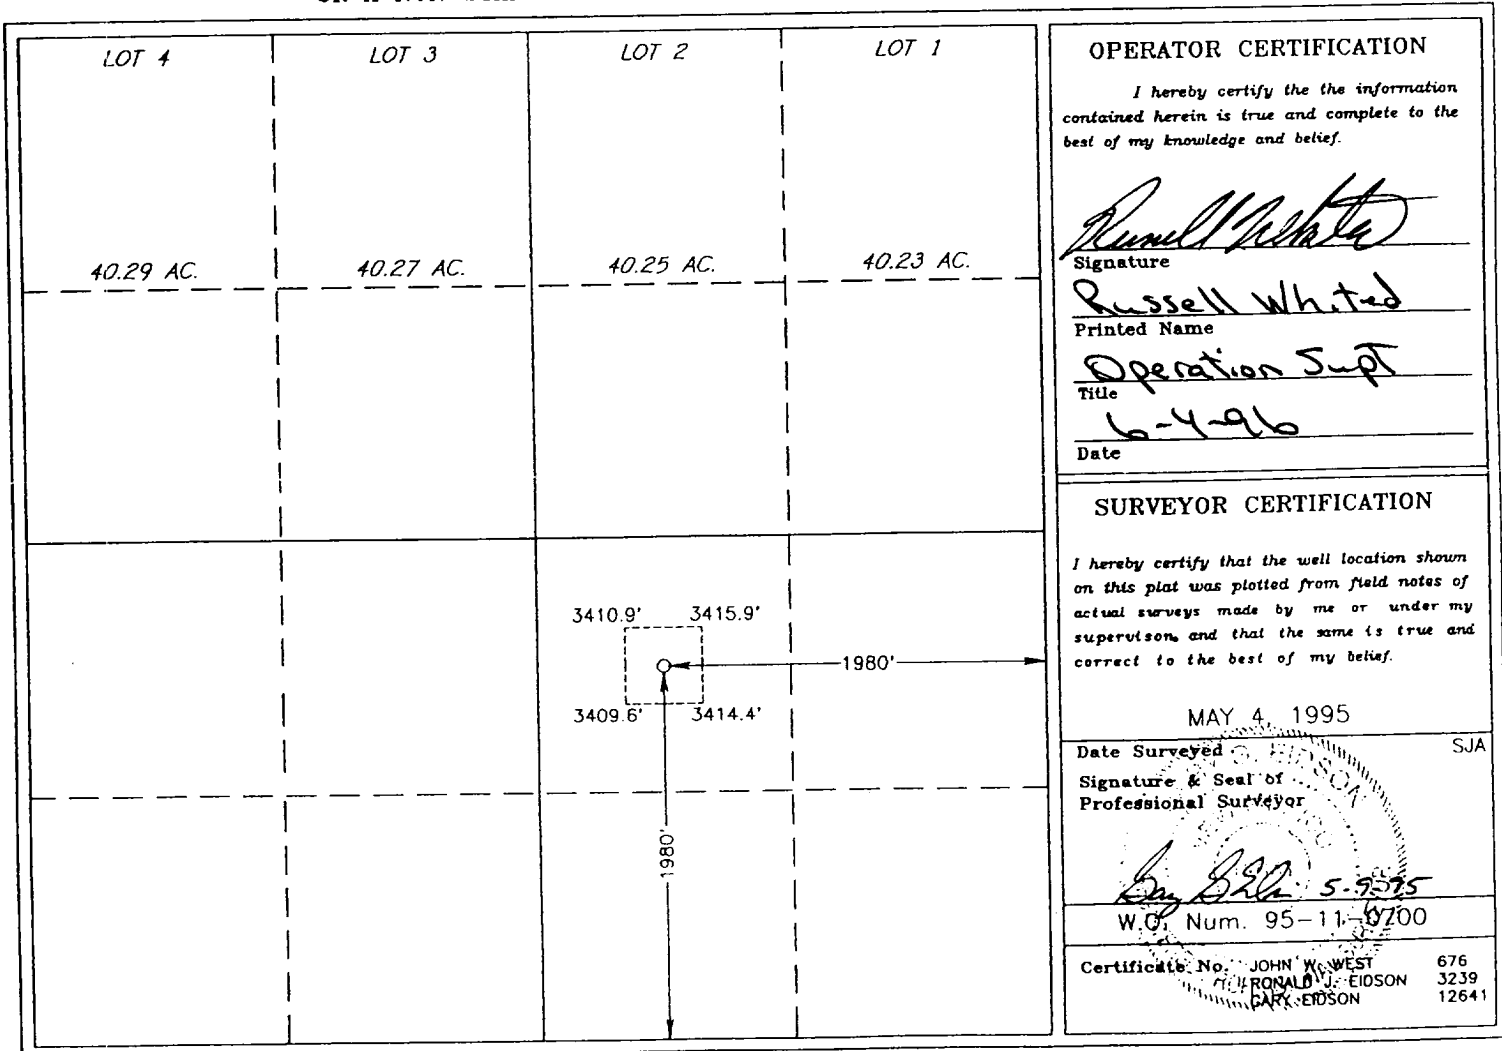 LOT 4
LOT 3
LOT 2
LOT 1
40.29 AC.
40.27 AC.
40.25 AC.
40.23 AC.
3410.9'
3415.9'
3409.6'
3414.4'
1980'
1980'
OPERATOR CERTIFICATION
I hereby certify the the information
contained herein is true and complete to the
best of my knowledge and belief.
Signature
Russell Whited
Printed Name
Operation Supt
Title
6-4-96
Date
SURVEYOR CERTIFICATION
I hereby certify that the well location shown
on this plat was plotted from field notes of
actual surveys made by me or under my
supervison, and that the same is true and
correct to the best of my belief.
MAY 4, 1995
Date Surveyed
SJA
Signature & Seal of
Professional Surveyor
5-9-95
W.O. Num. 95-11-0700
Certificate No. JOHN W. WEST 676
RONALD J. EIDSON 3239
GARY EIDSON 12641